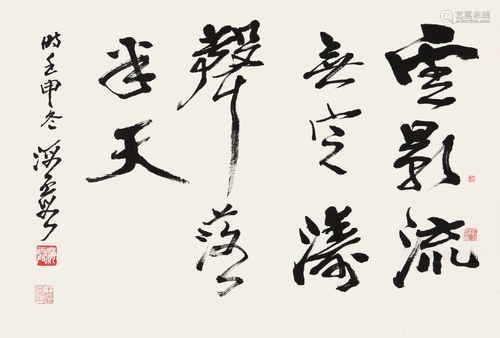 雲影流
無定濤
聲落
半天
時壬申冬